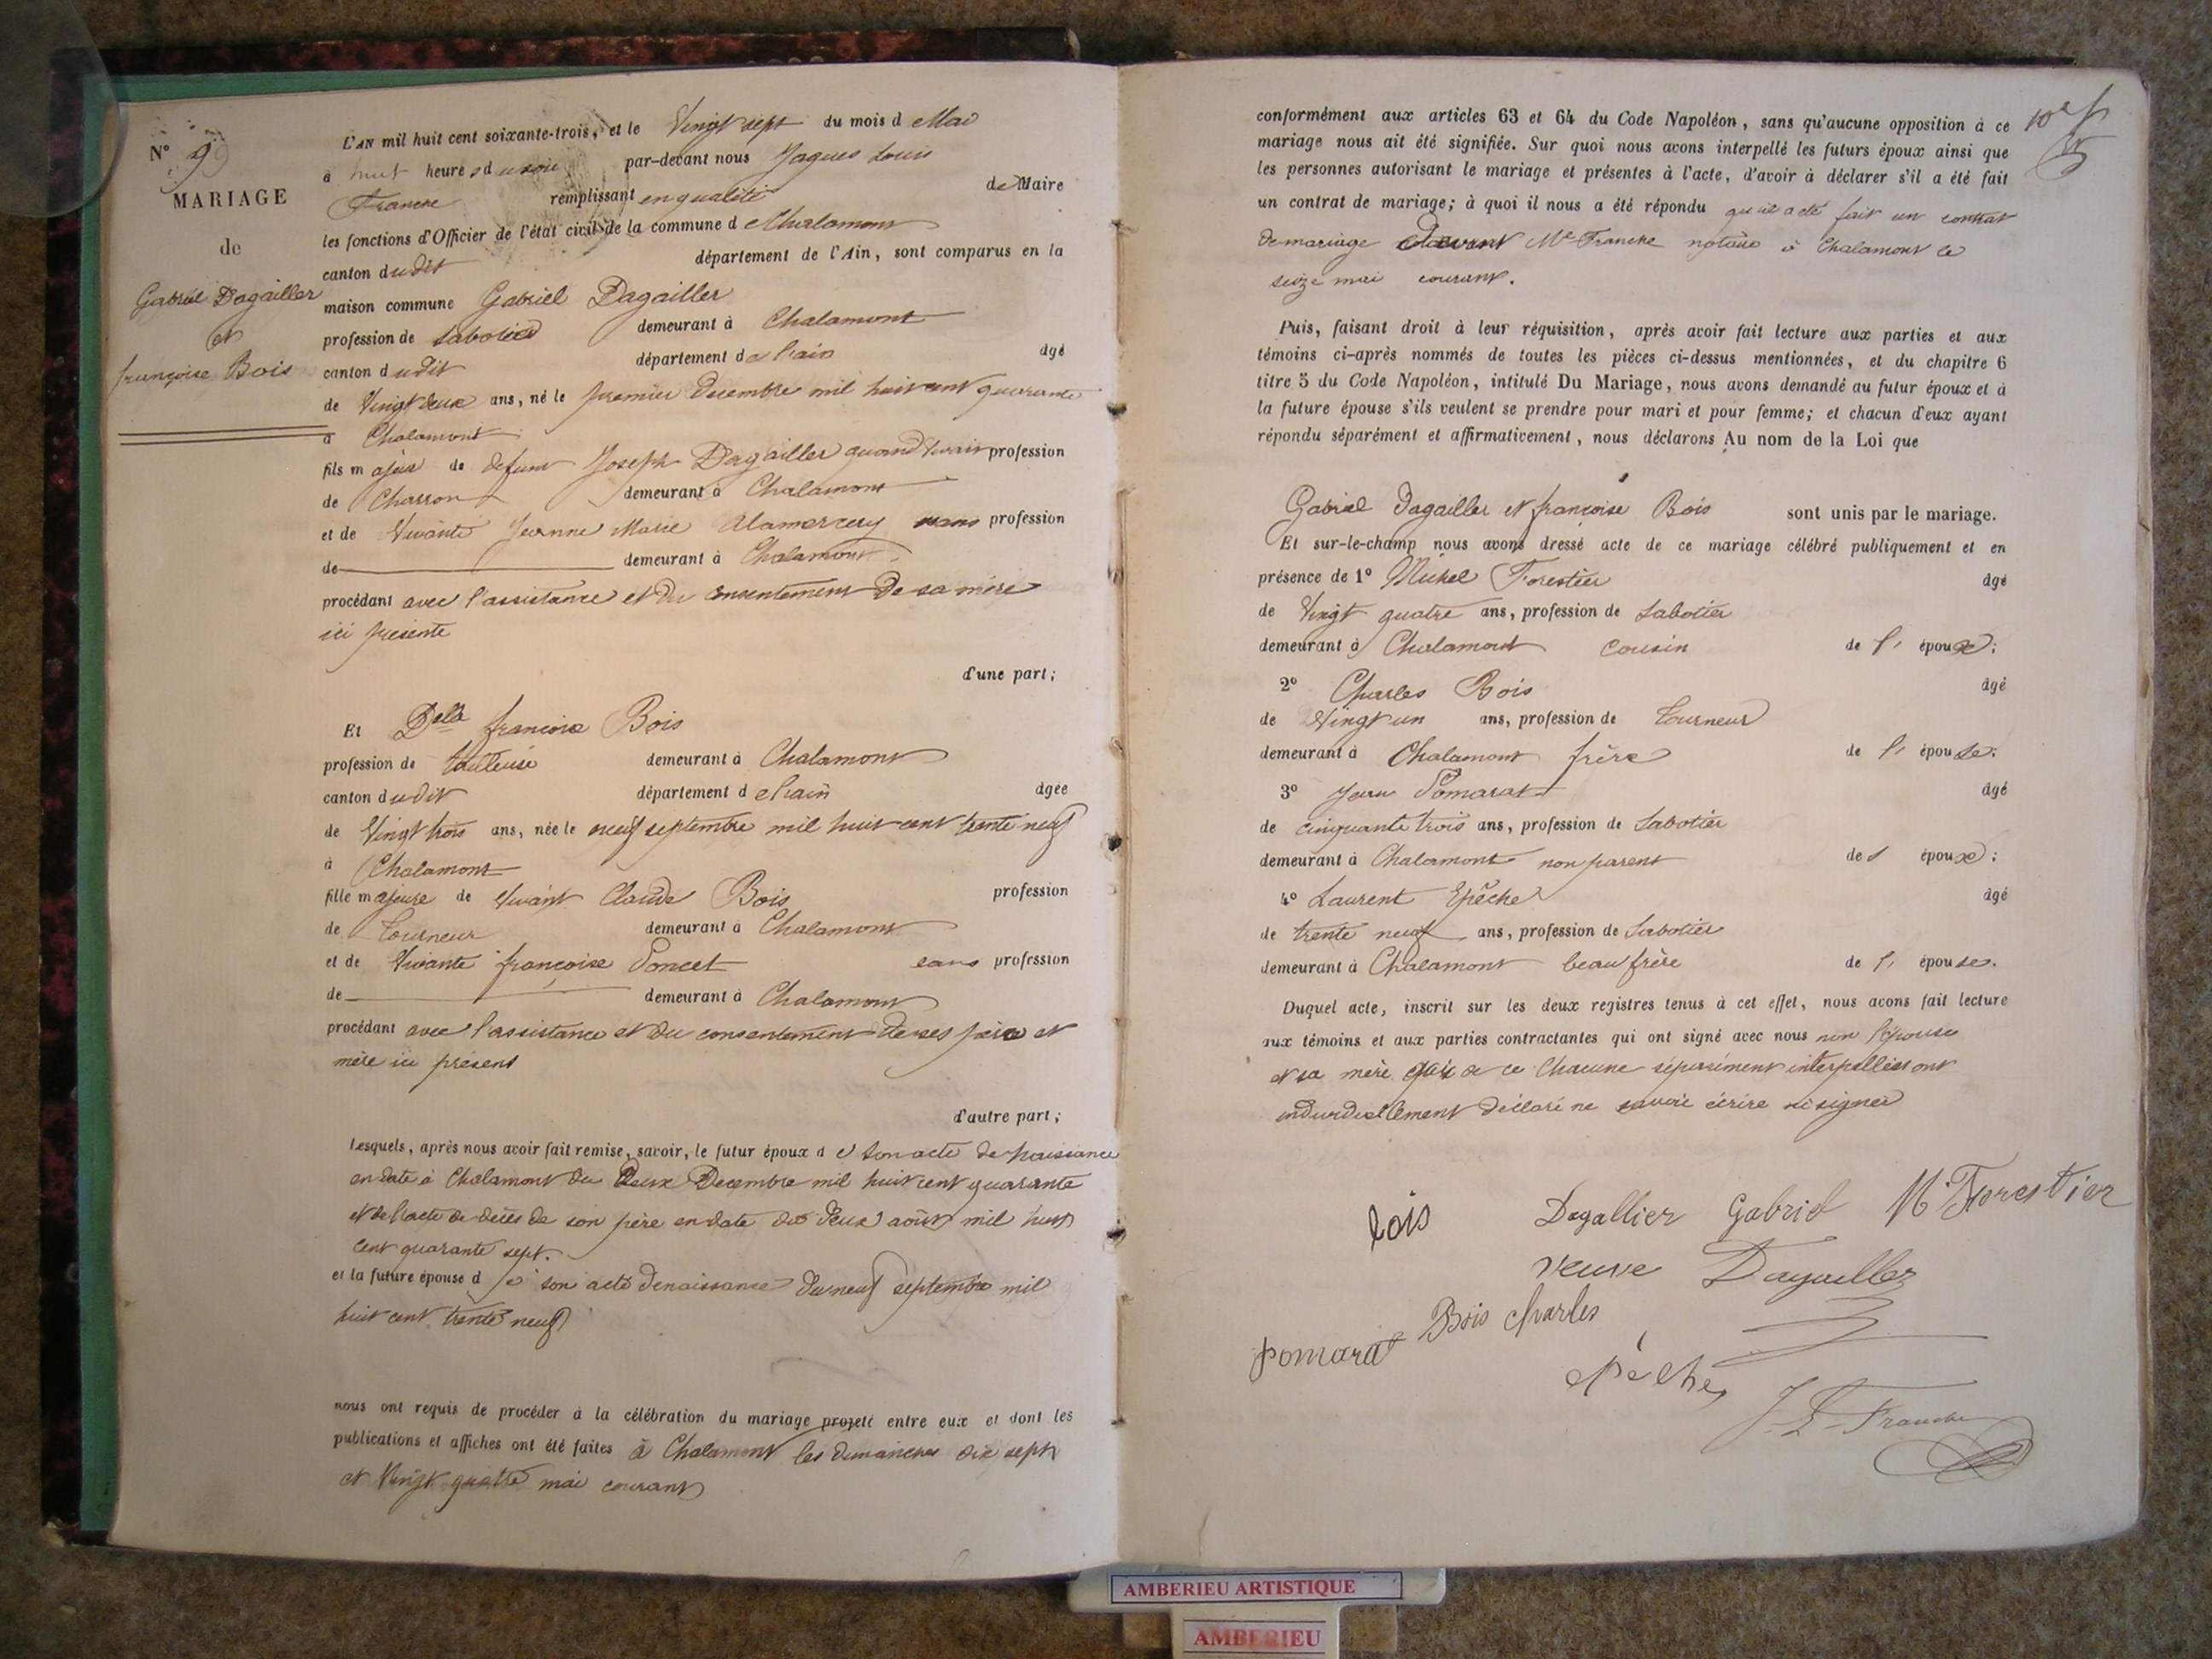 N° 9
MARIAGE
de
Gabriel Dagailler
et
françoise Bois
L'AN mil huit cent soixante-trois, et le Vingt sept du mois d e Mai
à huit heure s d u soir par-devant nous Jaques Louis
Franche remplissant en qualité de Maire
les fonctions d'Officier de l'état civil de la commune d e Chalamont
canton d udit département de l'Ain, sont comparus en la
maison commune Gabriel Dagailler
profession de Sabotier demeurant à Chalamont
canton d udit département d e l'ain âgé
de Vingt deux ans, né le premier Decembre mil huit cent quarante
à Chalamont
fils m ajeur de defunt Joseph Dagailler quand vivait profession
de Charron demeurant à Chalamont
et de Vivante Jeanne Marie Alamercery sans profession
de demeurant à Chalamont
procédant avec l'assistance et du consentement de sa mère
ici présente
d'une part;
Et Delle francoise Bois
profession de tailleuse demeurant à Chalamont
canton d udit département d e l'ain âgée
de Vingt trois ans, née le neuf septembre mil huit cent trente neuf
à Chalamont
fille m ajeure de Vivant Claude Bois profession
de Tourneur demeurant à Chalamont
et de Vivante françoise Poncet sans profession
de demeurant à Chalamont
procédant avec l'assistance et du consentement de ses père et
mère ici présent
d'autre part;
Lesquels, après nous avoir fait remise, savoir, le futur époux d e son acte de naissance
en date à Chalamont du Deux Decembre mil huit cent quarante
et de l'acte de décès de son père en date du Deux août mil huit
cent quarante sept.
et la future épouse d e son acte de naissance du neuf septembre mil
huit cent trente neuf
nous ont requis de procéder à la célébration du mariage projeté entre eux et dont les
publications et affiches ont été faites à Chalamont les dimanches dix sept
et Vingt quatre mai courant
conformément aux articles 63 et 64 du Code Napoléon, sans qu'aucune opposition à ce
mariage nous ait été signifiée. Sur quoi nous avons interpellé les futurs époux ainsi que
les personnes autorisant le mariage et présentes à l'acte, d'avoir à déclarer s'il a été fait
un contrat de mariage; à quoi il nous a été répondu qu'il a été fait un contrat
de mariage devant Me Franche notaire à Chalamont le
seize mai courant.
Puis, faisant droit à leur réquisition, après avoir fait lecture aux parties et aux
témoins ci-après nommés de toutes les pièces ci-dessus mentionnées, et du chapitre 6
titre 5 du Code Napoléon, intitulé Du Mariage, nous avons demandé au futur époux et à
la future épouse s'ils veulent se prendre pour mari et pour femme; et chacun d'eux ayant
répondu séparément et affirmativement, nous déclarons Au nom de la Loi que
Gabriel Dagailler et françoise Bois sont unis par le mariage.
Et sur-le-champ nous avons dressé acte de ce mariage célébré publiquement et en
présence de 1° Michel Forestier âgé
de Vingt quatre ans, profession de Sabotier
demeurant à Chalamont cousin de l' époux;
2° Charles Bois âgé
de Vingt un ans, profession de Tourneur
demeurant à Chalamont frère de l' épouse;
3° Jean Pomarat âgé
de cinquante trois ans, profession de Sabotier
demeurant à Chalamont non parent de l époux;
4° Laurent Epêche âgé
de trente neuf ans, profession de Sabotier
demeurant à Chalamont beau frère de l' épouse.
Duquel acte, inscrit sur les deux registres tenus à cet effet, nous avons fait lecture
aux témoins et aux parties contractantes qui ont signé avec nous non l'épouse
et sa mère qui de ce Chacune séparément interpellées ont
individuellement déclaré ne savoir écrire ni signer
bois Dagallier Gabriel M Forestier
veuve Dagailler
Bois charles
pomarat
epéche
J. L. Franche
AMBERIEU ARTISTIQUE
AMBERIEU